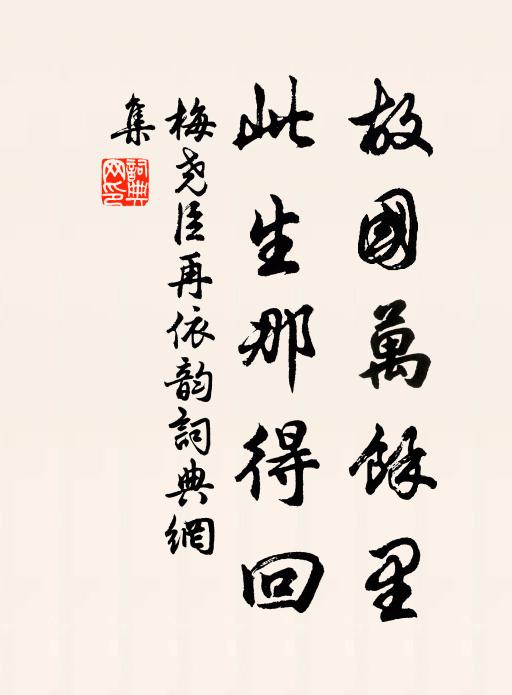 故國萬餘里
此生那得回
梅堯臣再依韵詞典網
集
詞典
网印